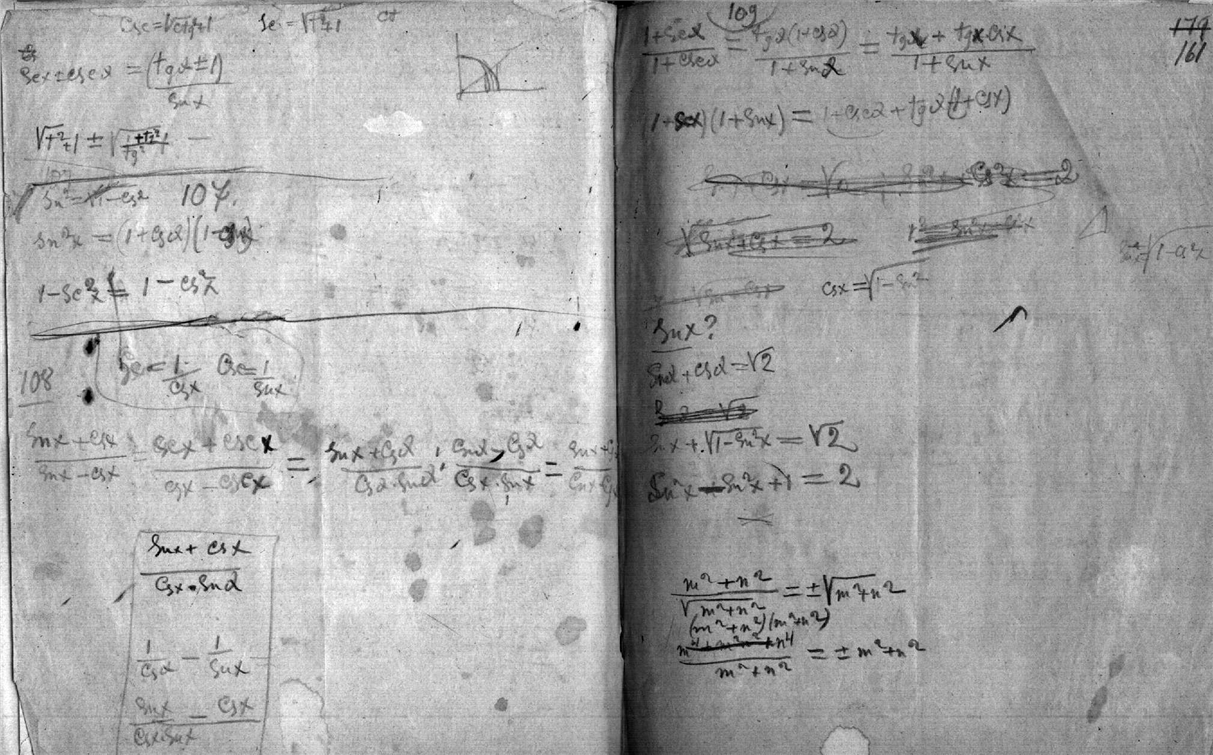 Csc = √ctg²+1 Se = √t²+1 ct
Sex ± cscα = (tgα ± 1)
Snx
√t²+1 ± √1+tg²
tg²
107
Sn² = √1-cs² 107.
sn²x = (1+Csα)(1-csx)
1-Sc²x = 1-cs²x
108
Se = 1/Csx Csc = 1/Snx
Snx + csx / Snx - csx = secx + cscx / csx - cscx = Snx + Csα / Csα·Snα : Snα - Csα / Csx·Snx =
Snx + csx
Csx·Snα
1/Csα - 1/Snx
Snx - Csx
Csx·Snx
109
1+Secα / 1+cscα = tgα(1+csα) / 1+Snα = tgx + tgx·csx / 1+Snx
179
161
(1+Scx)(1+Snx) = 1+cscα+tgα(1+csx)
Cs²x = 2
√Snx+Csx = 2
√1-α²x
csx = √1-Sn²
Snx?
Snα + csα = √2
Snx + √1-Sn²x = √2
Sn²x - Sn²x + 1 = 2
m²+n² / √m²+n² = ±√m²+n²
(m²+n²)(m²+n²)
m⁴+m²n²+n⁴
m²+n² = ± m²+n²